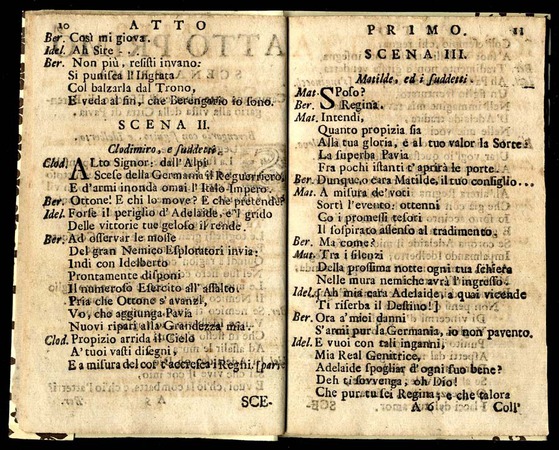 10 ATTO
Ber. Così mi giova.
Idel. Ah Sire - - -
Ber. Non più, resisti invano:
Si punisca l'Ingrata
Col balzarla dal Trono,
E veda al fin, che Berengario io sono.
SCENA II.
Clodimiro, e suddetti.
Clod. ALto Signor: dall'Alpi
Scese della Germania il Re guerriero,
E d'armi inonda omai l'Italo Impero.
Ber. Ottone! E chi lo move? E che pretende?
Idel. Forse il periglio d'Adelaide, e'l grido
Delle vittorie tue geloso il rende.
Ber. Ad osservar le mosse
Del gran Nemico Esploratori invia;
Indi con Idelberto
Prontamente disponi
Il numeroso Esercito all'assalto.
Pria che Ottone s'avanzi,
Vo, che aggiunga Pavia
Nuovi ripari alla Grandezza mia.
Clod. Propizio arrida il Cielo
A' tuoi vasti disegni,
E a misura del cor t'accresca i Regni. [parte
SCE-
PRIMO. 11
SCENA III.
Matilde, ed i suddetti.
Mat. SPoso?
Ber. Regina.
Mat. Intendi,
Quanto propizia sia
Alla tua gloria, e al tuo valor la Sorte?
La superba Pavia
Fra pochi istanti t'aprirà le porte.
Ber. Dunque, o cara Matilde, il tuo consiglio...
Mat. A misura de' voti
Sortì l'evento: ottenni
Co i promessi tesori
Il sospirato assenso al tradimento.
Ber. Ma come?
Mat. Tra i silenzi
Della prossima notte ogni tua schiera
Nelle mura nemiche avrà l'ingresso.
Idel. [Ah mia cara Adelaide, a qual vicende
Ti riserba il Destino!]
Ber. Ora a' miei danni
S'armi pur la Germania, io non pavento.
Idel. E vuoi con tali inganni,
Mia Real Genitrice,
Adelaide spogliar d'ogni suo bene?
Deh ti sovvenga, oh Dio!
Che pur tu sei Regina; e che talora
A 6 Coll'